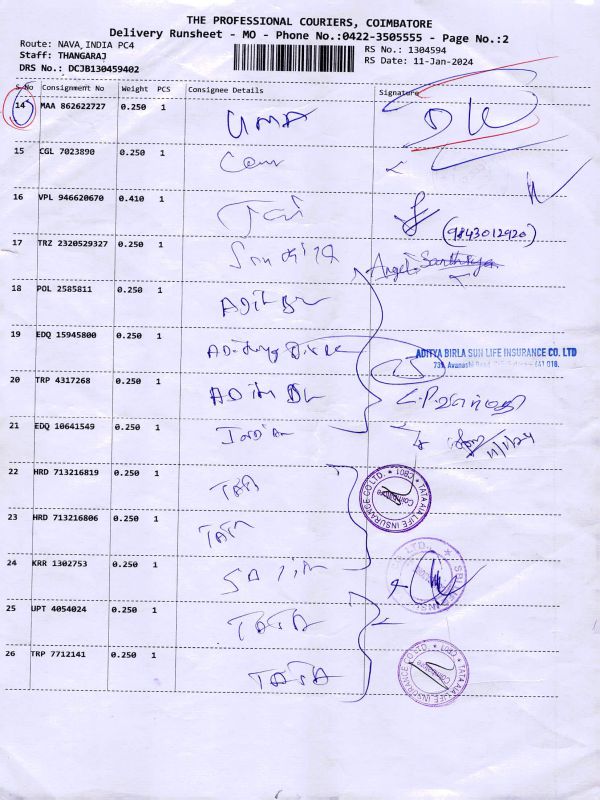 THE PROFESSIONAL COURIERS, COIMBATORE
Delivery Runsheet - MO - Phone No.:0422-3505555 - Page No.:2
Route: NAVA INDIA PC4
RS No.: 1304594
Staff: THANGARAJ
RS Date: 11-Jan-2024
DRS No.: DCJB130459402
S.No Consignment No Weight PCS Consignee Details Signature
14 MAA 862622727 0.250 1 UMA
15 CGL 7023890 0.250 1
16 VPL 946620670 0.410 1
(9843012920)
17 TRZ 2320529327 0.250 1 Angel Santhiya
18 POL 2585811 0.250 1
19 EDQ 15945800 0.250 1
ADITYA BIRLA SUN LIFE INSURANCE CO. LTD
20 TRP 4317268 0.250 1
21 EDQ 10641549 0.250 1 11/1/24
22 HRD 713216819 0.250 1 TATA
TATA AIA LIFE INSURANCE CO LTD. * C801 * Coimbatore
23 HRD 713216806 0.250 1 TATA
24 KRR 1302753 0.250 1
25 UPT 4054024 0.250 1 TATA
26 TRP 7712141 0.250 1 TATA
TATA AIA LIFE INSURANCE CO LTD. * C801 * Coimbatore